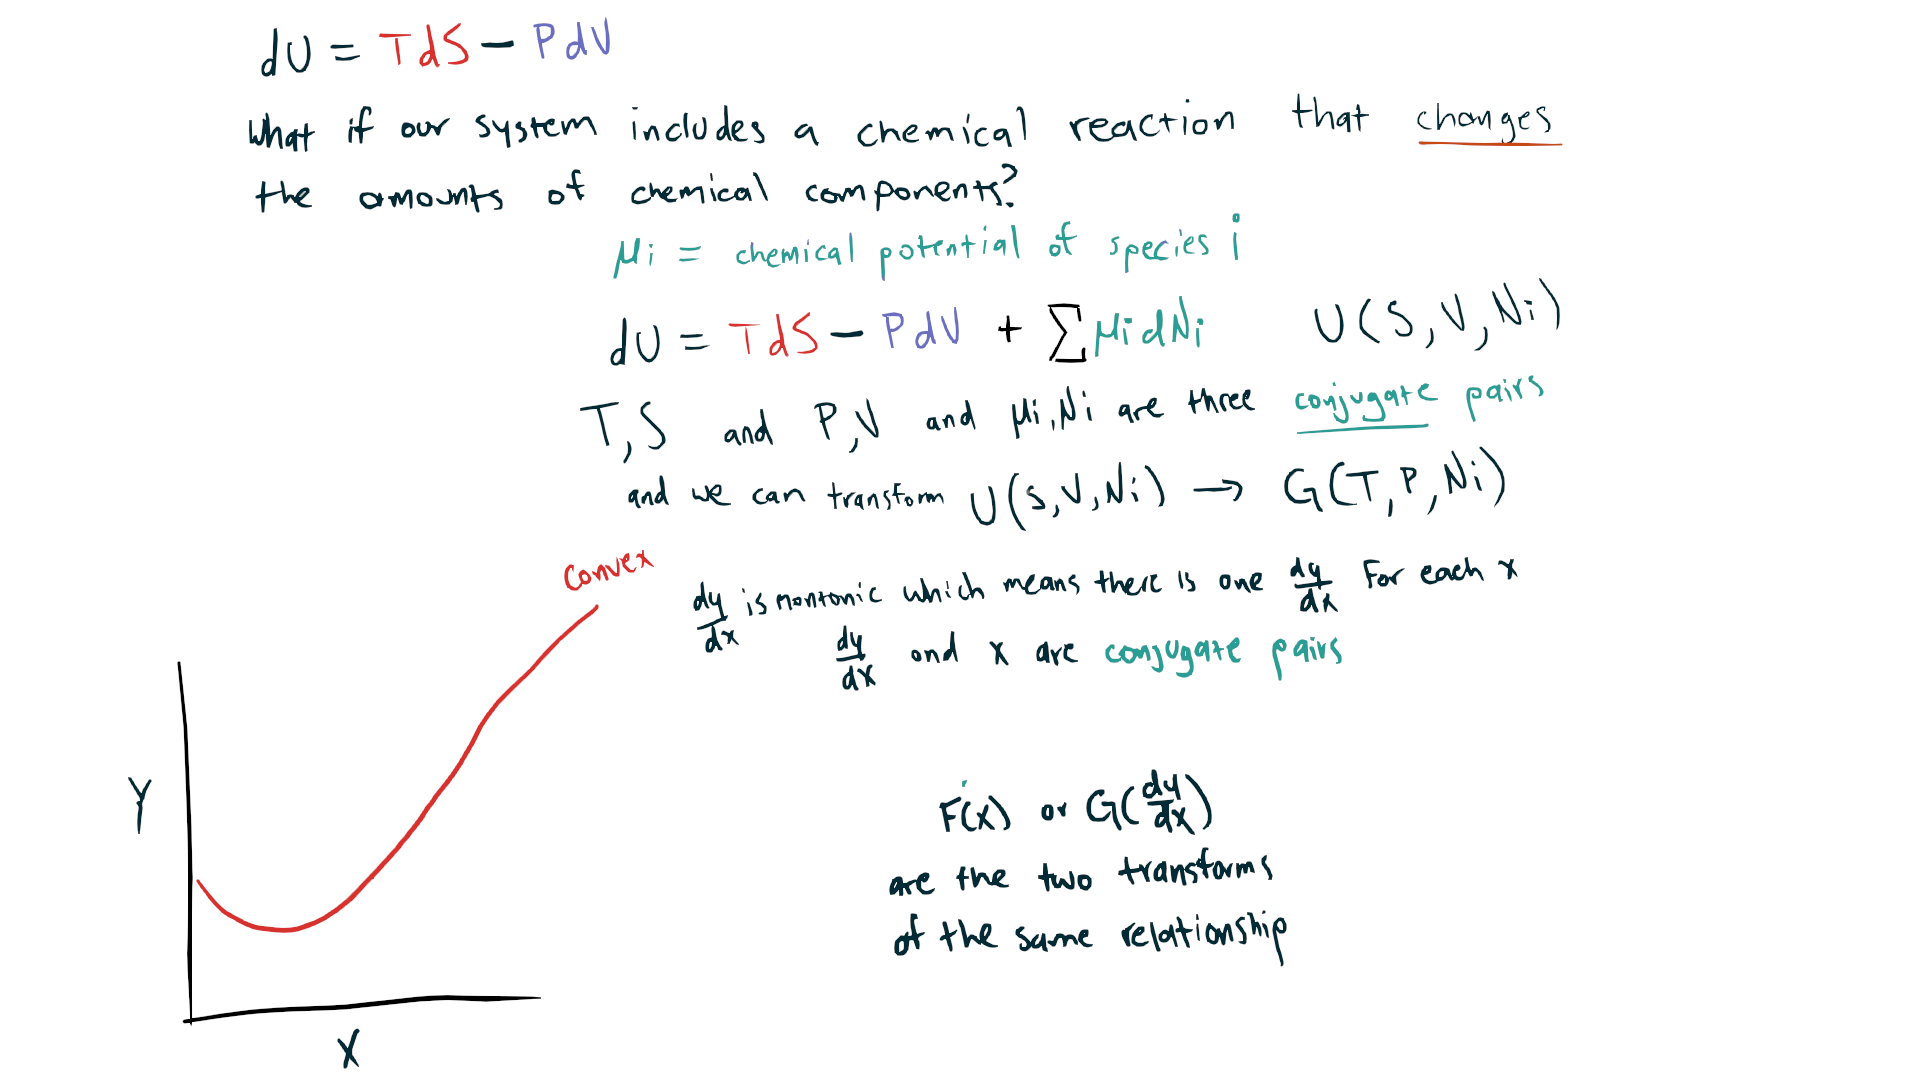 dU = TdS - PdV
What if our system includes a chemical reaction that changes
the amounts of chemical components?
μi = chemical potential of species i
dU = TdS - PdV + ∑ μi dNi U(S, V, Ni)
T, S and P, V and μi, Ni are three conjugate pairs
and we can transform U(S, V, Ni) → G(T, P, Ni)
Convex
dy/dx is montonic which means there is one dy/dx For each x
dy/dx and x are conjugate pairs
Y
F(x) or G(dy/dx)
are the two transforms
of the same relationship
X